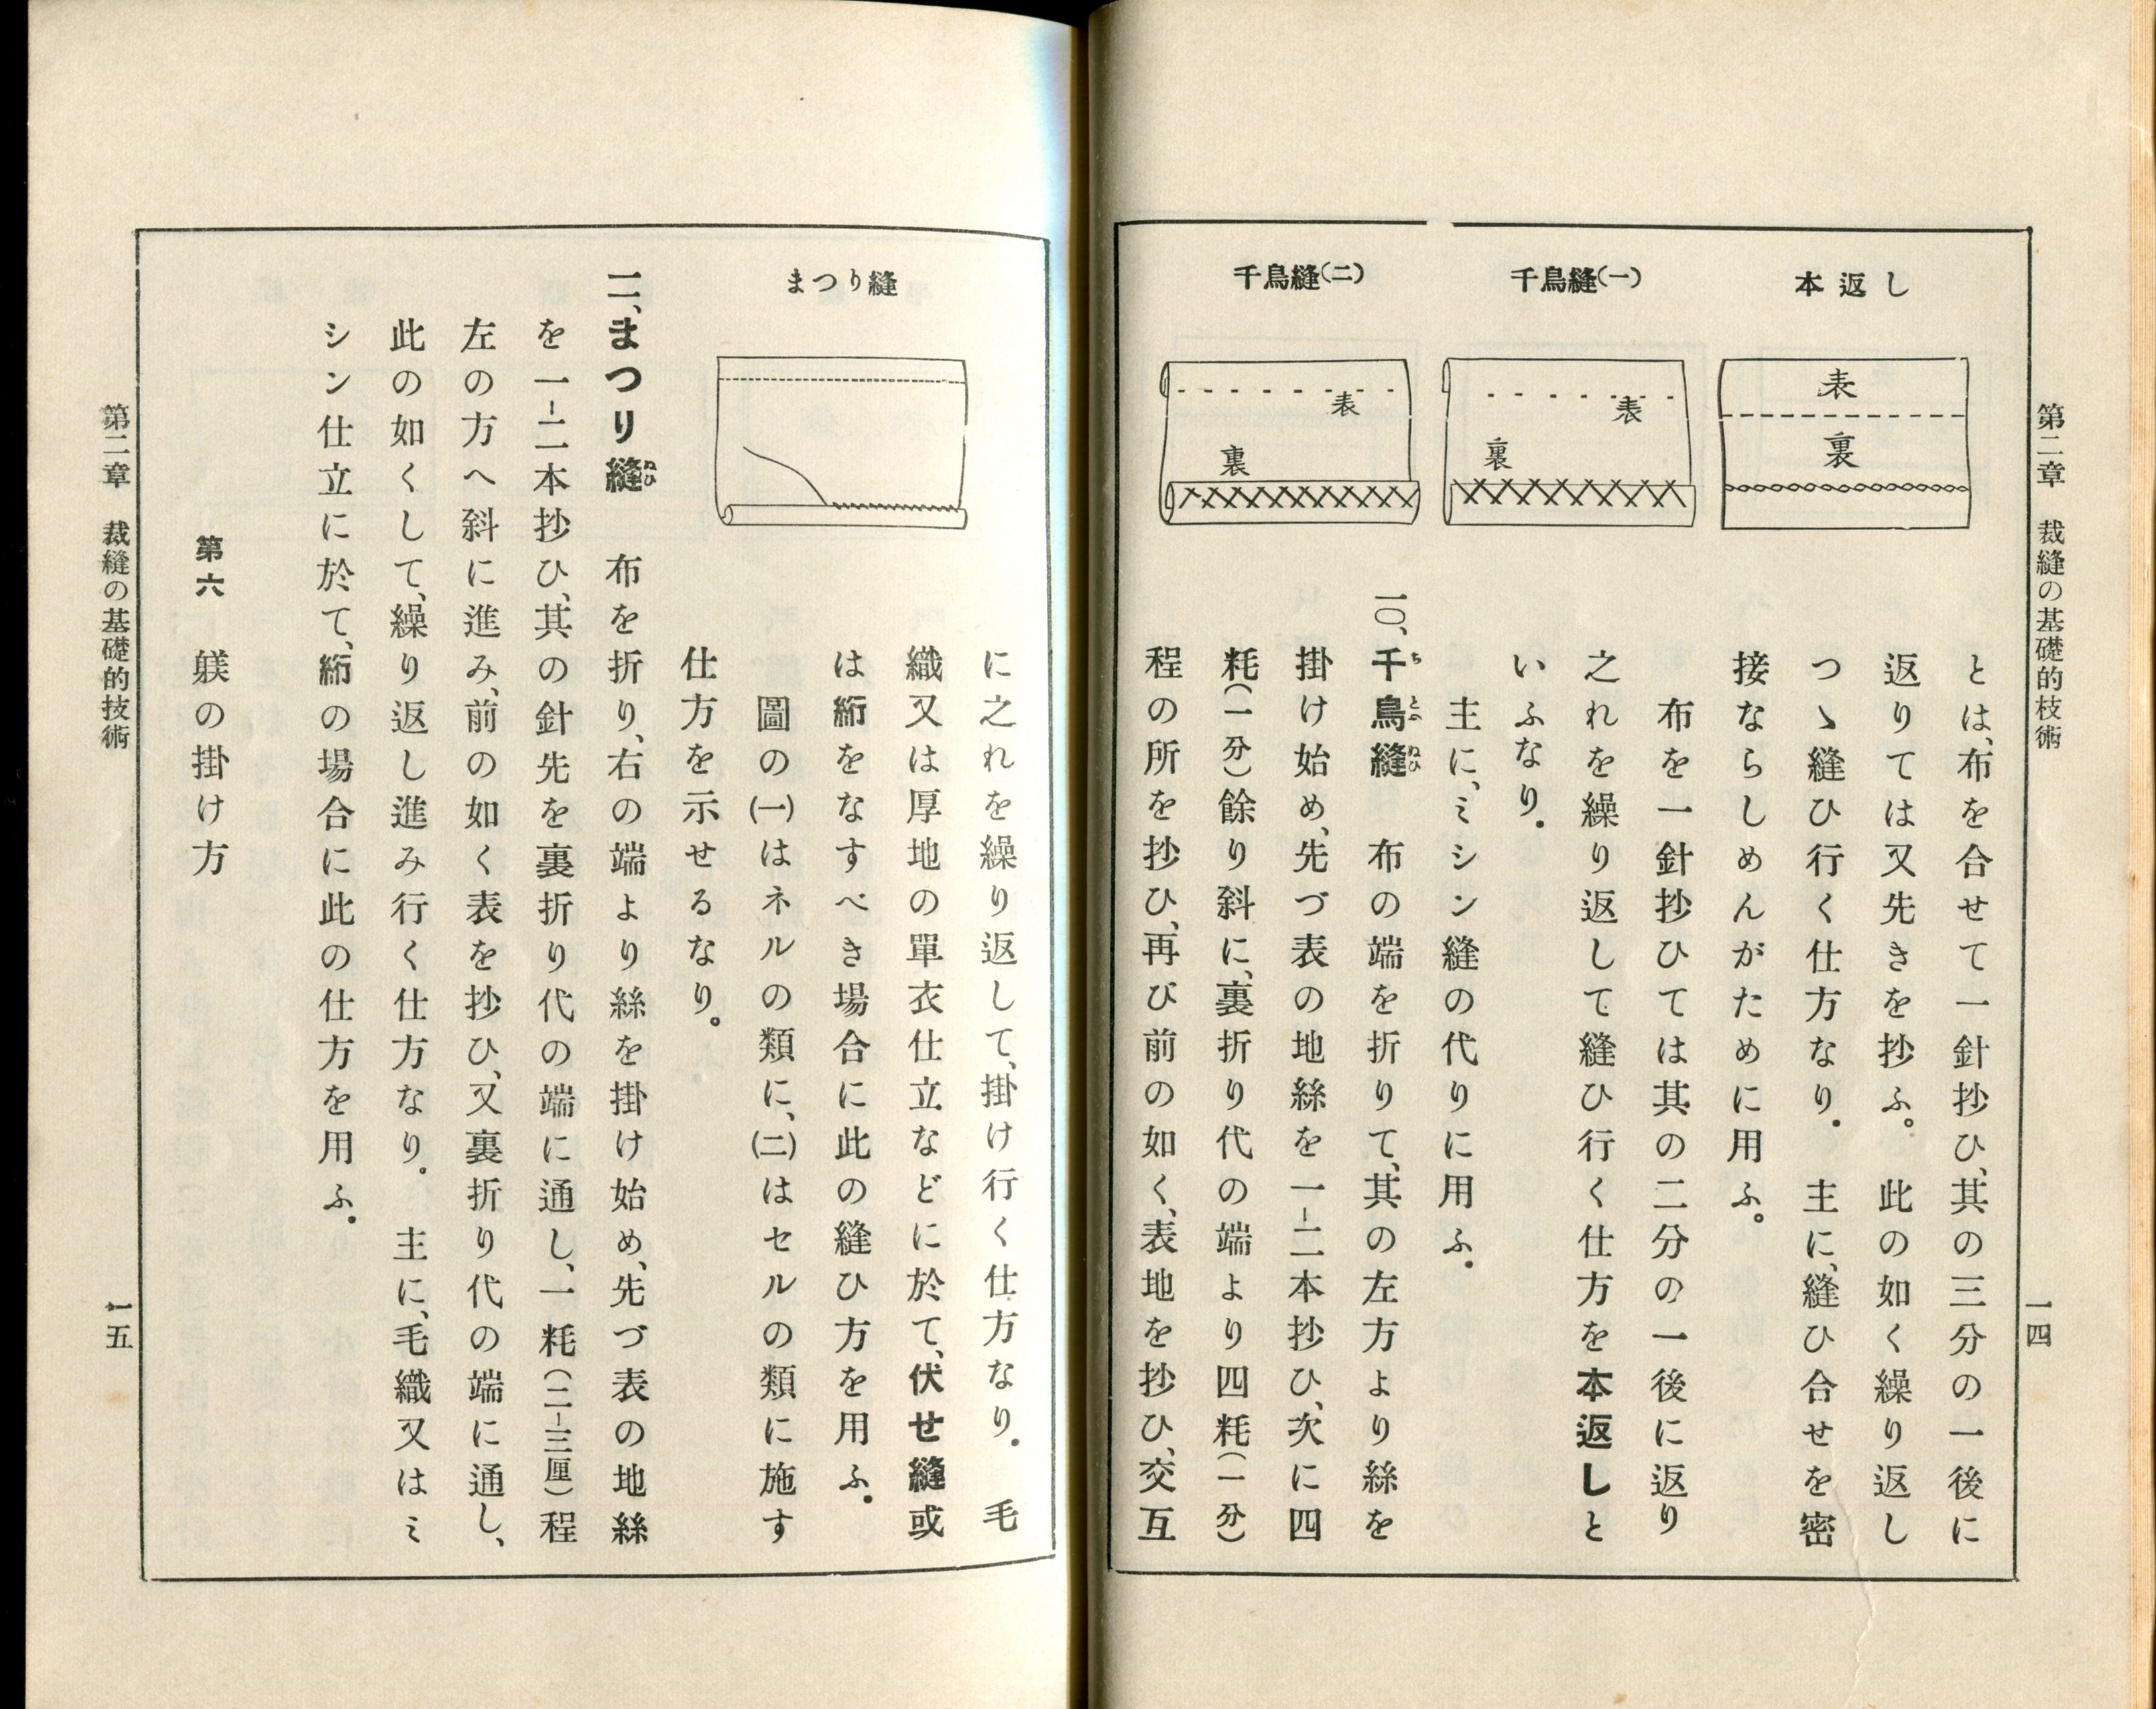 第二章　裁縫の基礎的技術
一四
本返し
表
裏
千鳥縫(一)
表
裏
千鳥縫(二)
表
裏
とは、布を合せて一針抄ひ、其の三分の一後に
返りては又先きを抄ふ。此の如く繰り返し
つゝ縫ひ行く仕方なり。主に、縫ひ合せを密
接ならしめんがために用ふ。
布を一針抄ひては其の二分の一後に返り
之れを繰り返して縫ひ行く仕方を本返しと
いふなり。
主に、ミシン縫の代りに用ふ。
一〇、千鳥縫　布の端を折りて、其の左方より絲を
掛け始め、先づ表の地絲を一-二本抄ひ、次に四
粍(一分)餘り斜に、裏折り代の端より四粍(一分)
程の所を抄ひ、再び前の如く、表地を抄ひ、交互
まつり縫
に之れを繰り返して、掛け行く仕方なり。毛
織又は厚地の單衣仕立などに於て、伏せ縫或
は絎をなすべき場合に此の縫ひ方を用ふ。
圖の(一)はネルの類に、(二)はセルの類に施す
仕方を示せるなり。
一一、まつり縫　布を折り、右の端より絲を掛け始め、先づ表の地絲
を一-二本抄ひ、其の針先を裏折り代の端に通し、一粍(二-三厘)程
左の方へ斜に進み、前の如く表を抄ひ、又裏折り代の端に通し、
此の如くして、繰り返し進み行く仕方なり。主に、毛織又はミ
シン仕立に於て、絎の場合に此の仕方を用ふ。
第六　躾の掛け方
第二章　裁縫の基礎的技術
一五